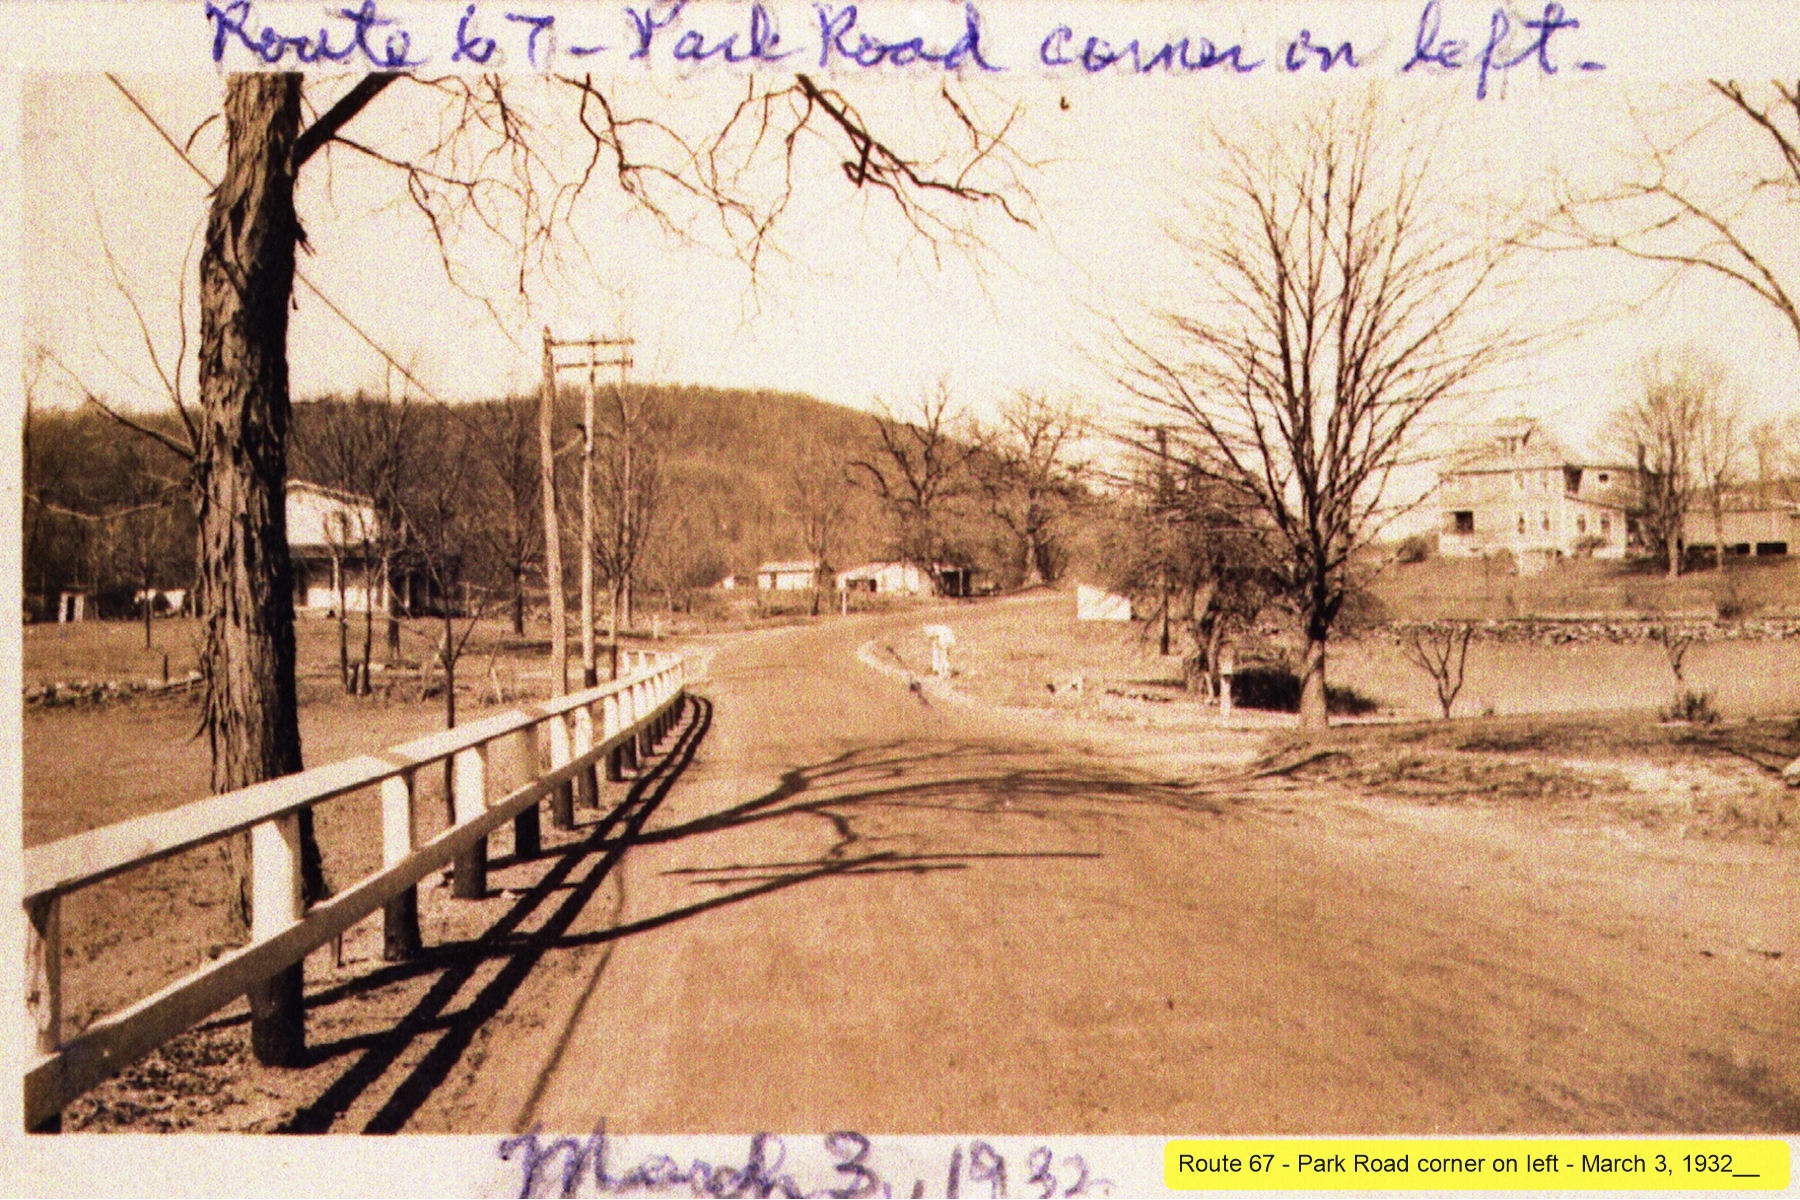 Route 67 - Park Road corner on left -
March 3, 1932.
Route 67 - Park Road corner on left - March 3, 1932__